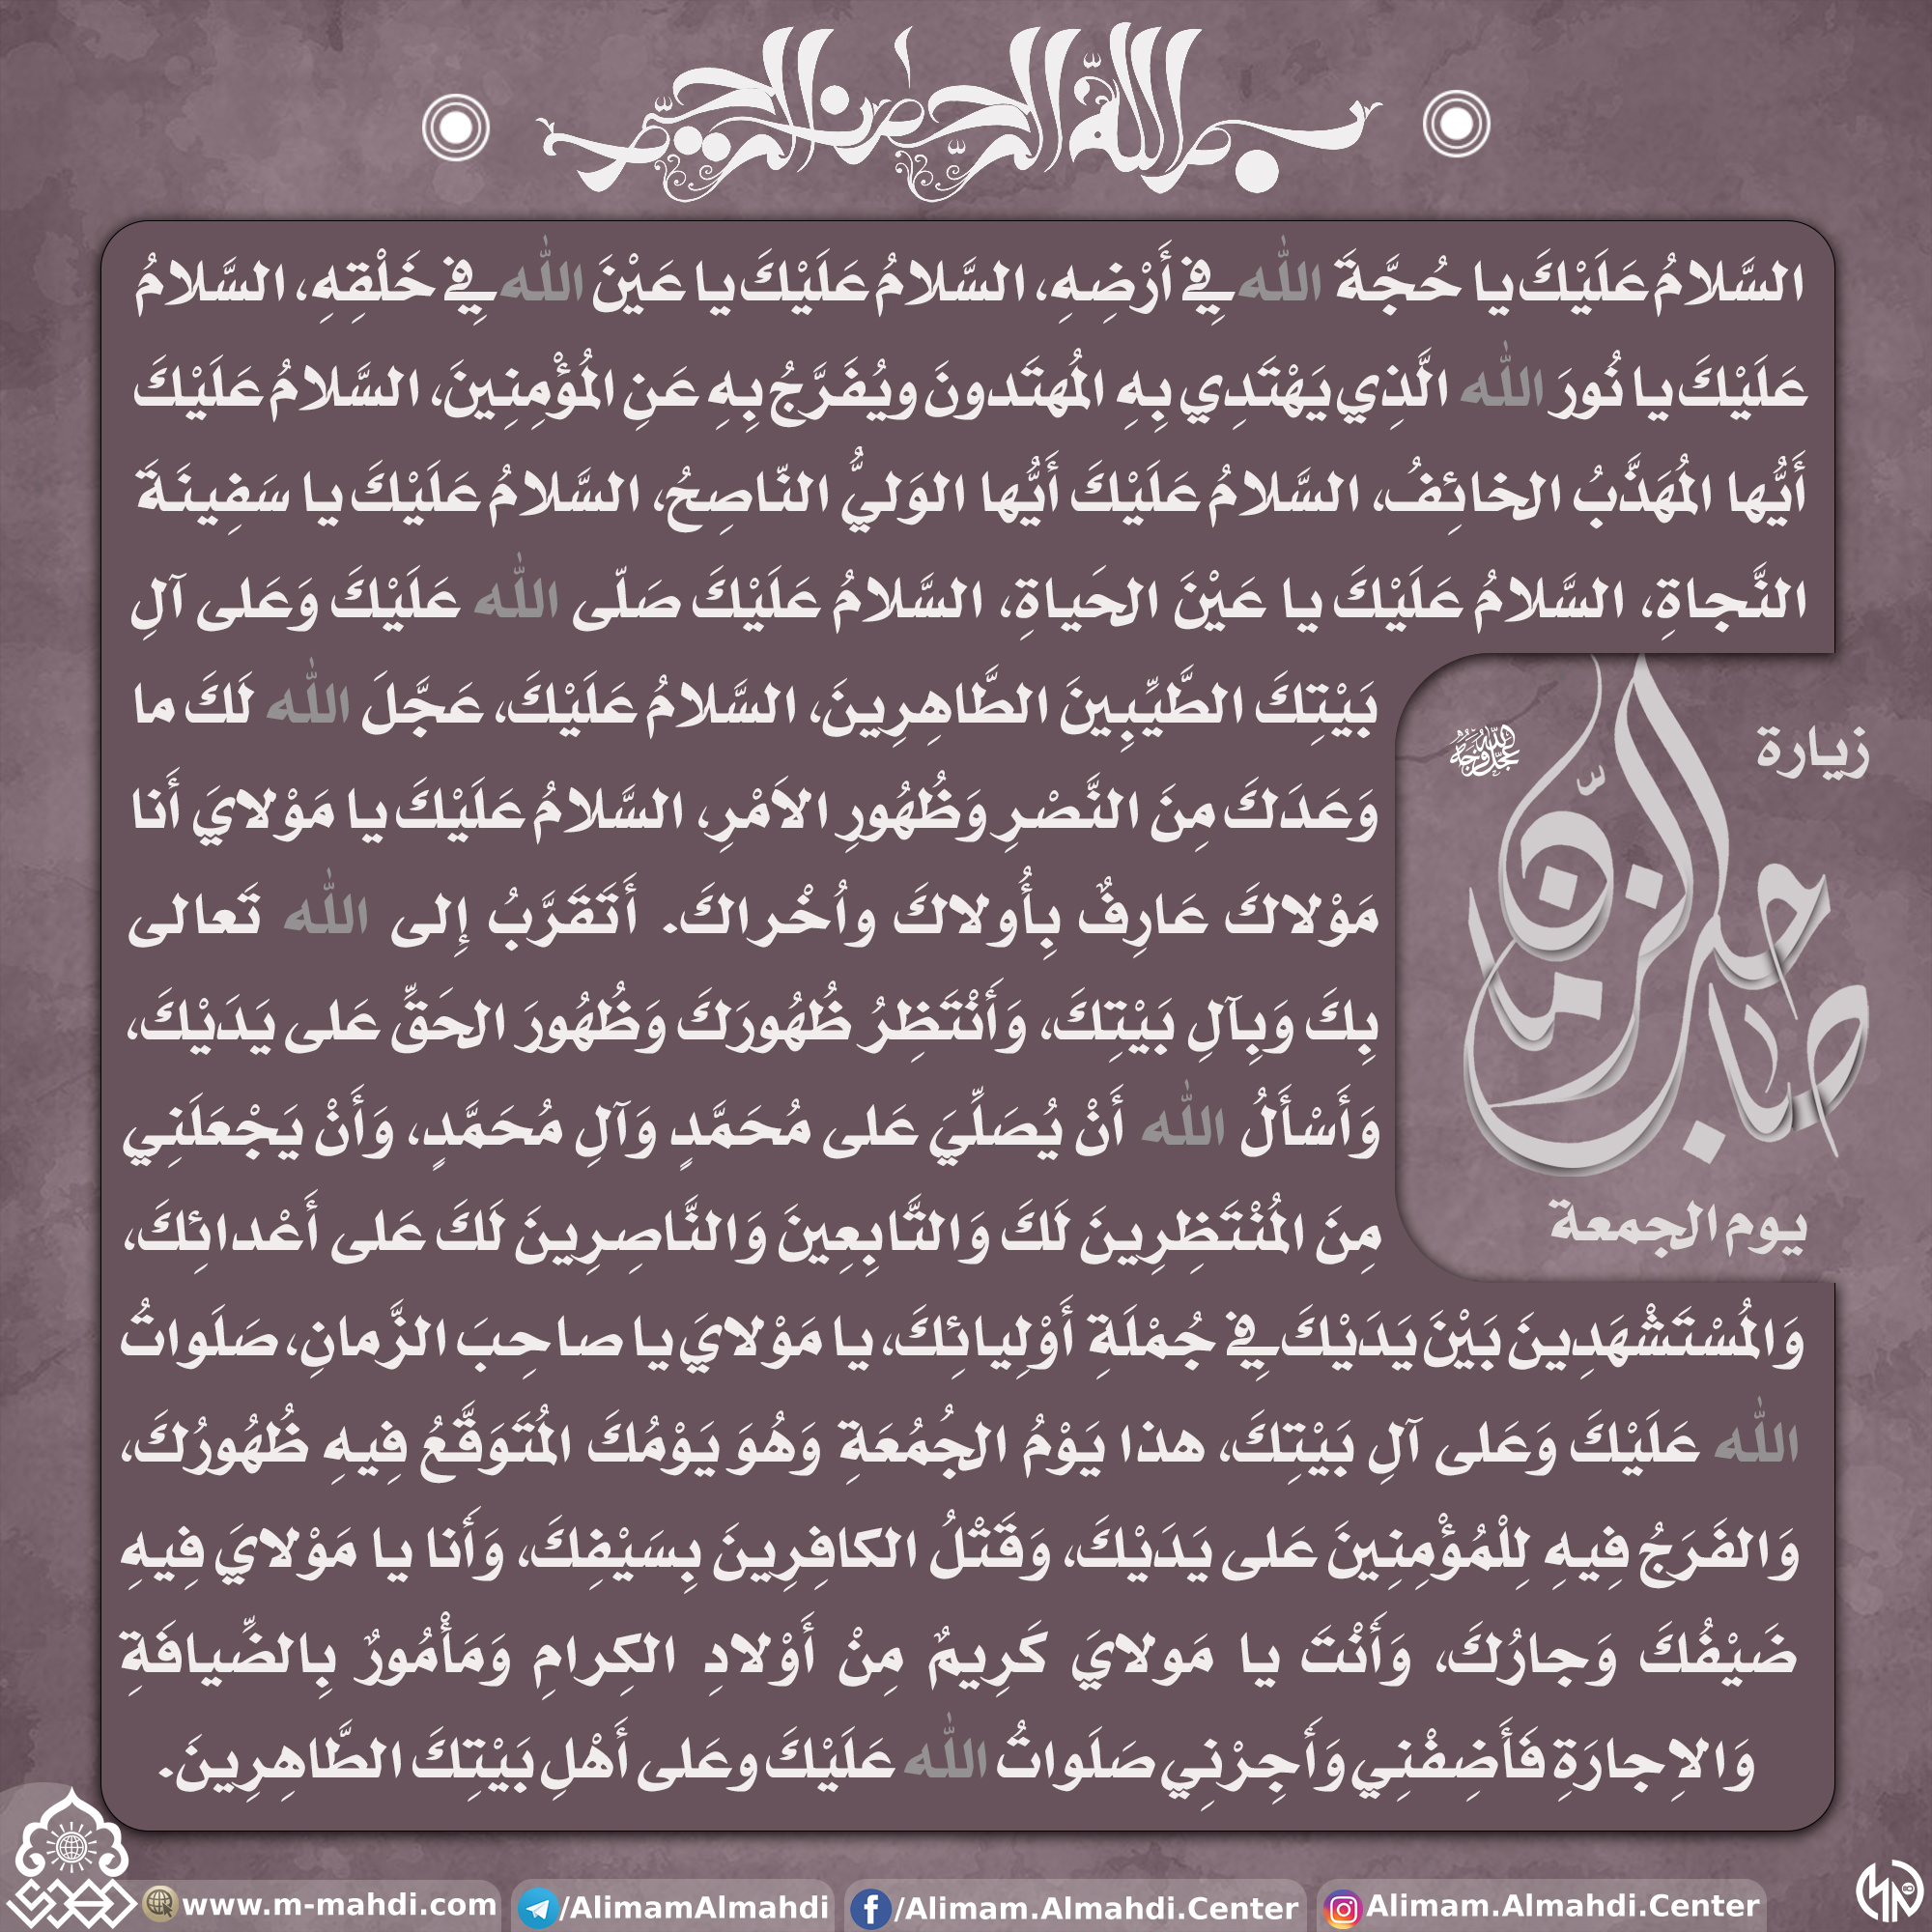 بسم الله الرحمن الرحيم
السَّلامُ عَلَيْكَ يا حُجَّةَ الله فِي أَرْضِهِ، السَّلامُ عَلَيْكَ يا عَيْنَ الله فِي خَلْقِهِ، السَّلامُ
عَلَيْكَ يا نُورَ الله الَّذِي يَهْتَدِي بِهِ المُهتَدونَ ويُفَرَّجُ بِهِ عَنِ المُؤْمِنِينَ، السَّلامُ عَلَيْكَ
أَيُّها المُهَذَّبُ الخائِفُ، السَّلامُ عَلَيْكَ أَيُّها الوَليُّ النّاصِحُ، السَّلامُ عَلَيْكَ يا سَفِينَةَ
النَّجاةِ، السَّلامُ عَلَيْكَ يا عَيْنَ الحَياةِ، السَّلامُ عَلَيْكَ صَلّى الله عَلَيْكَ وَعَلى آلِ
بَيْتِكَ الطَّيِّبِينَ الطَّاهِرِينَ، السَّلامُ عَلَيْكَ، عَجَّلَ الله لَكَ ما
وَعَدَكَ مِنَ النَّصْرِ وَظُهُورِ الاَمْرِ، السَّلامُ عَلَيْكَ يا مَوْلايَ أَنا
مَوْلاكَ عَارِفٌ بِأُولاكَ واُخْراكَ. أَتَقَرَّبُ إِلى الله تَعالى
بِكَ وَبِآلِ بَيْتِكَ، وَأَنْتَظِرُ ظُهُورَكَ وَظُهُورَ الحَقِّ عَلى يَدَيْكَ،
وَأَسْأَلُ الله أَنْ يُصَلِّيَ عَلى مُحَمَّدٍ وَآلِ مُحَمَّدٍ، وَأَنْ يَجْعَلَنِي
مِنَ المُنْتَظِرِينَ لَكَ وَالتَّابِعِينَ وَالنَّاصِرِينَ لَكَ عَلى أَعْدائِكَ،
زيارة
عجل الله فرجه
صاحب الزمان
يوم الجمعة
وَالمُسْتَشْهَدِينَ بَيْنَ يَدَيْكَ فِي جُمْلَةِ أَوْلِيائِكَ، يا مَوْلايَ يا صاحِبَ الزَّمانِ، صَلَواتُ
الله عَلَيْكَ وَعَلى آلِ بَيْتِكَ، هذا يَوْمُ الجُمُعَةِ وَهُوَ يَوْمُكَ المُتَوَقَّعُ فِيهِ ظُهُورُكَ،
وَالفَرَجُ فِيهِ لِلْمُؤْمِنِينَ عَلى يَدَيْكَ، وَقَتْلُ الكافِرِينَ بِسَيْفِكَ، وَأَنا يا مَوْلايَ فِيهِ
ضَيْفُكَ وَجارُكَ، وَأَنْتَ يا مَولايَ كَرِيمٌ مِنْ أَوْلادِ الكِرامِ وَمَأْمُورٌ بِالضِّيافَةِ
وَالاِجارَةِ فَأَضِفْنِي وَأَجِرْنِي صَلَواتُ الله عَلَيْكَ وعَلى أَهْلِ بَيْتِكَ الطَّاهِرِينَ.
www.m-mahdi.com /AlimamAlmahdi /Alimam.Almahdi.Center Alimam.Almahdi.Center